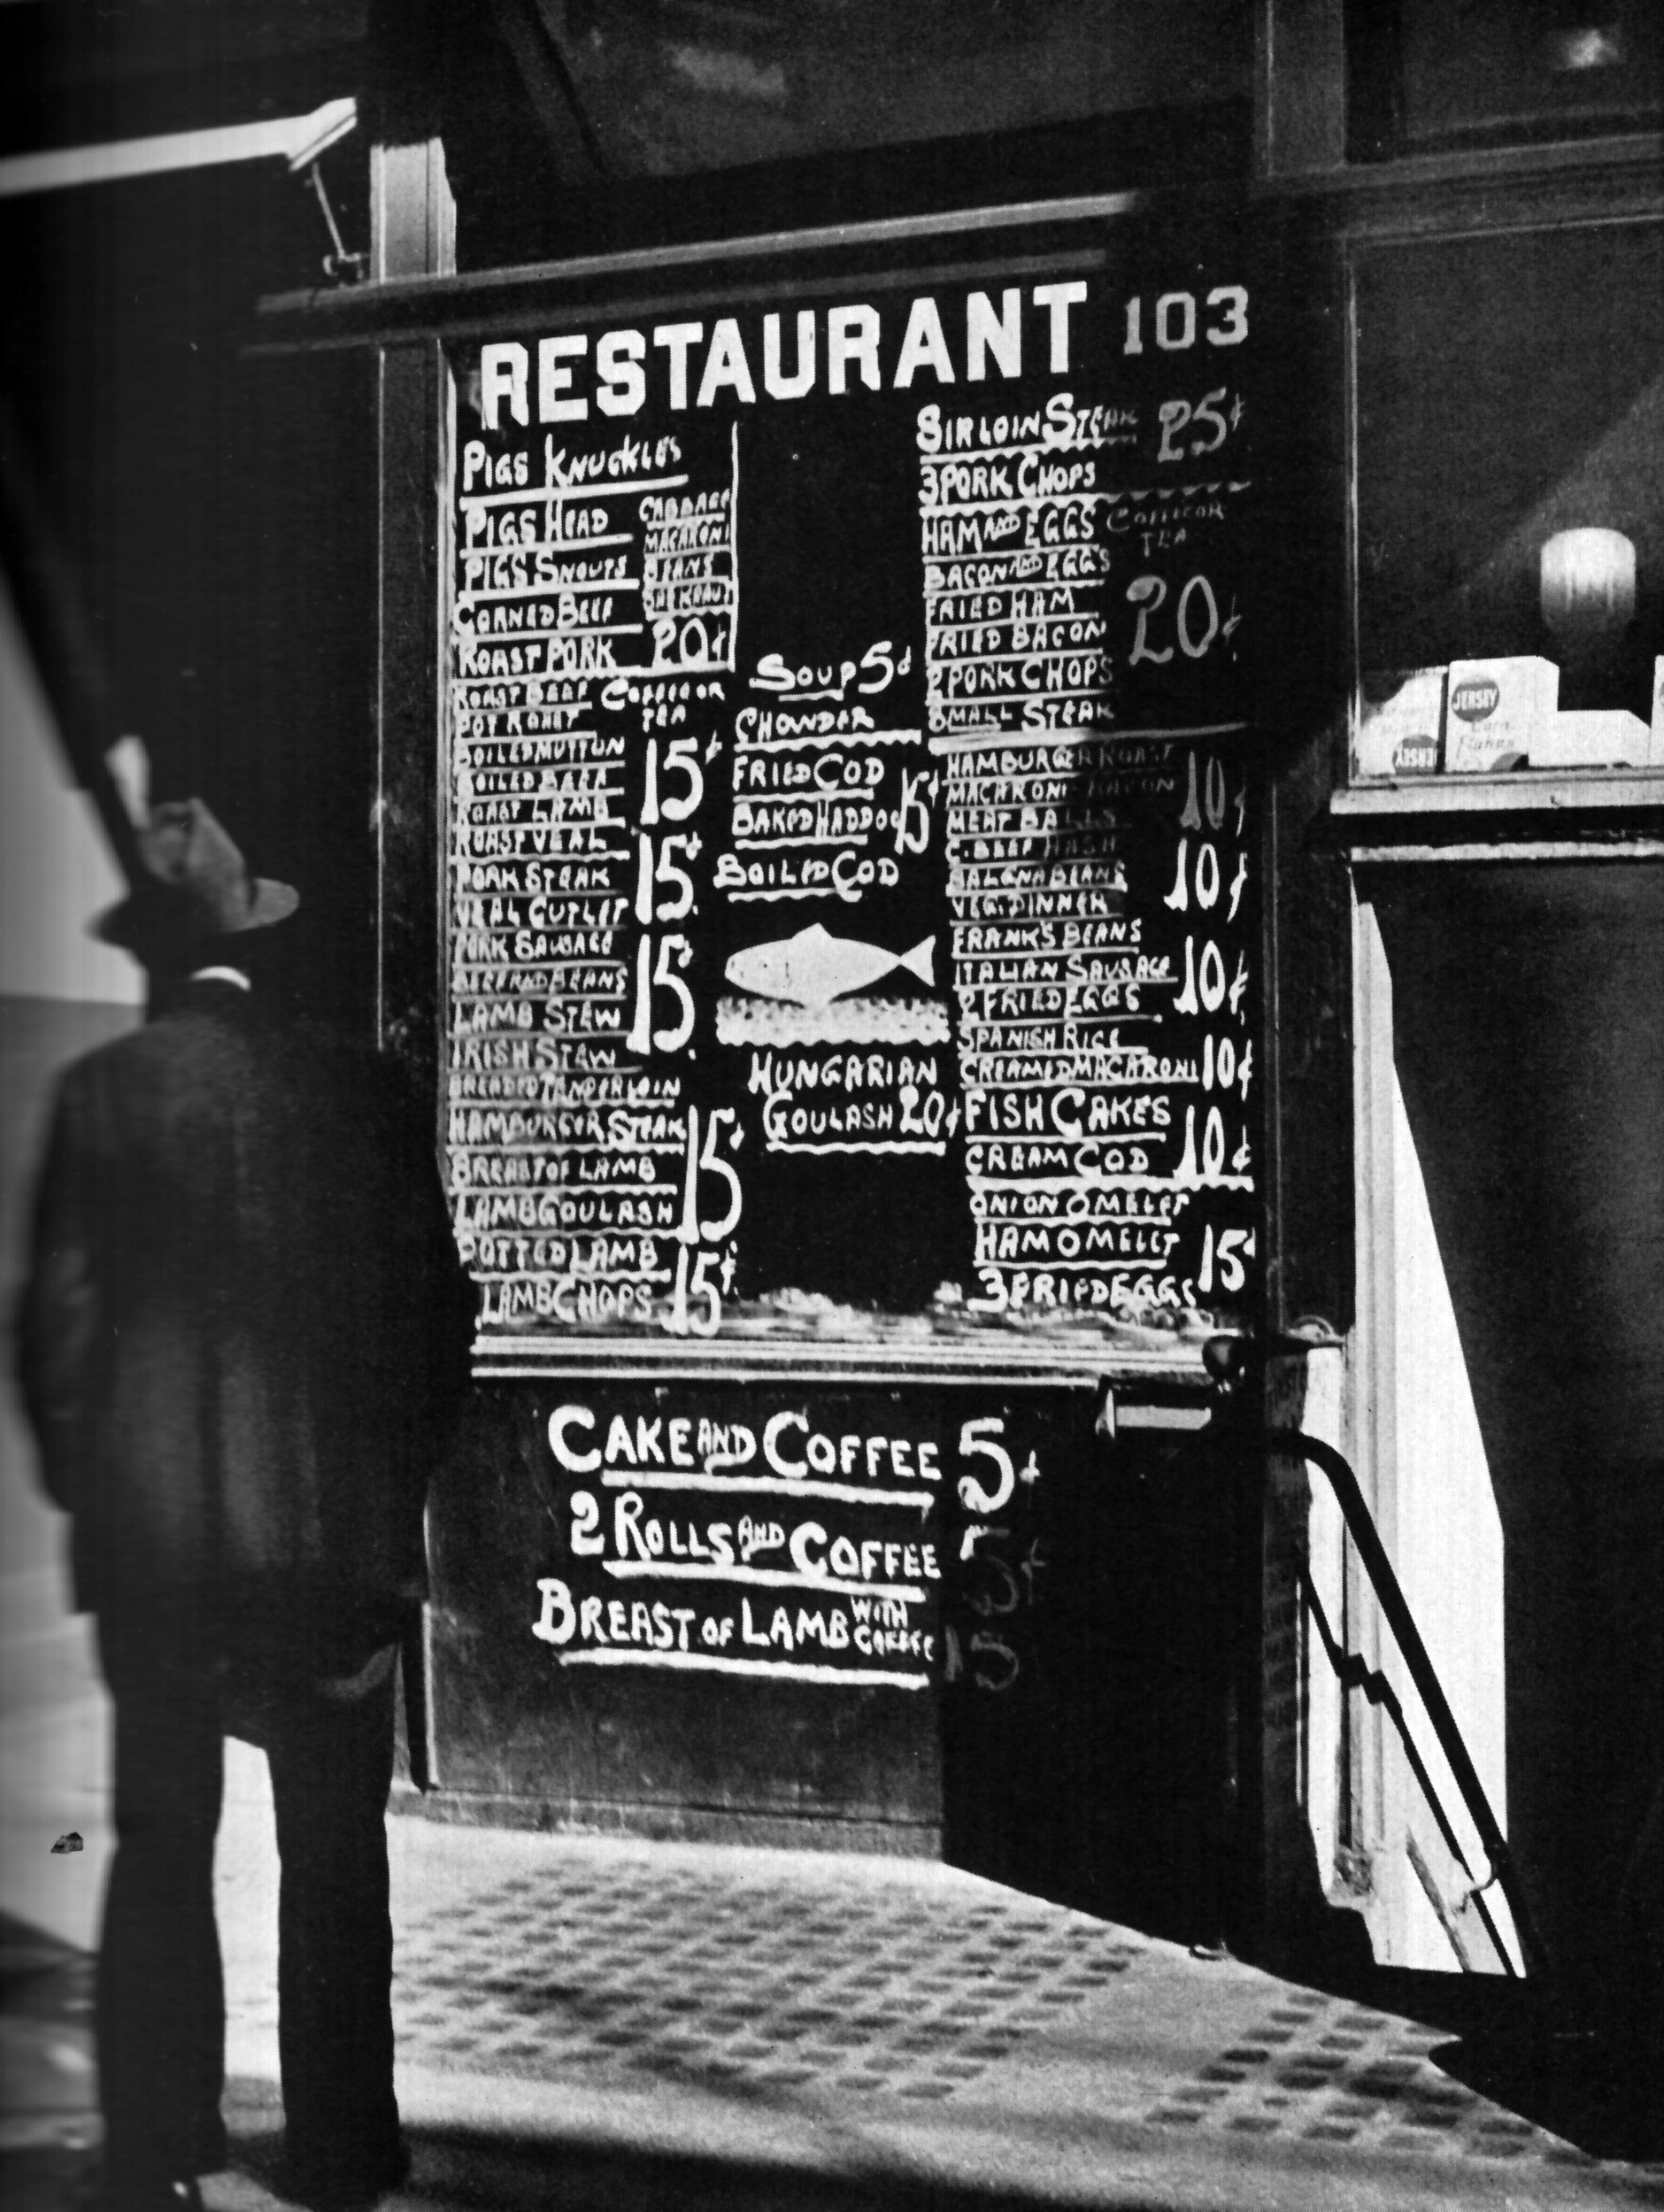 RESTAURANT 103
PIGS KNUCKLES
PIGS HEAD
PIGS SNOUTS
CORNED BEEF
ROAST PORK
CABBAGE
MACARONI
BEANS
20¢
ROAST BEEF
POT ROAST
BOILED MUTTON
BOILED BEEF
ROAST LAMB
ROAST VEAL
PORK STEAK
VEAL CUTLET
PORK SAUSAGE
BEEF AND BEANS
LAMB STEW
IRISH STEW
BREADED TANDERLOIN
HAMBURGER STEAK
BREAST OF LAMB
LAMB GOULASH
POTTED LAMB
LAMB CHOPS
COFFEE OR
TEA
15¢
15¢
15¢
15¢
15¢
SOUP 5¢
CHOWDER
FRIED COD
BAKED HADDOC
15¢
BOILED COD
HUNGARIAN
GOULASH 20¢
SIRLOIN STEAK
3 PORK CHOPS
25¢
HAM AND EGGS
BACON AND EGGS
FRIED HAM
FRIED BACON
2 PORK CHOPS
SMALL STEAK
COFFEE OR
TEA
20¢
HAMBURGER ROAST
MACARONI BACON
MEAT BALLS
10¢
C. BEEF HASH
BALONA BEANS
VEG. DINNER
10¢
FRANK'S BEANS
ITALIAN SAUSAGE
2 FRIED EGGS
10¢
SPANISH RICE
CREAMED MACARONI 10¢
FISH CAKES
CREAM COD
10¢
ONION OMELET
HAM OMELET
3 FRIED EGGS
15¢
CAKE AND COFFEE 5¢
2 ROLLS AND COFFEE 5¢
BREAST OF LAMB WITH COFFEE 15
JERSEY
JERSEY